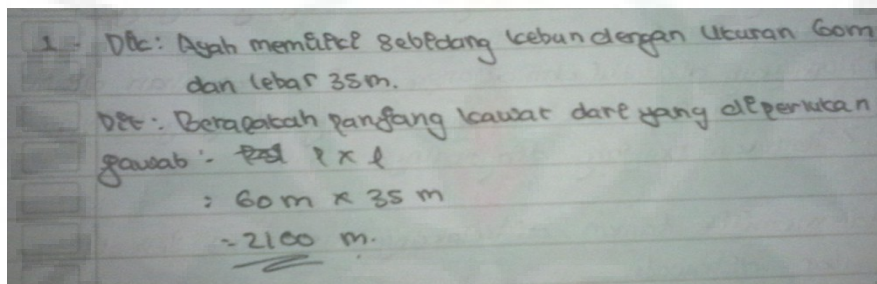 1. Dik: Ayah memiliki sebidang kebun dengan ukuran 60m
dan lebar 35m.
Dit: Berapakah panjang kawat dare yang diperlukan
Jawab: p x l
: 60 m x 35 m
= 2100 m.